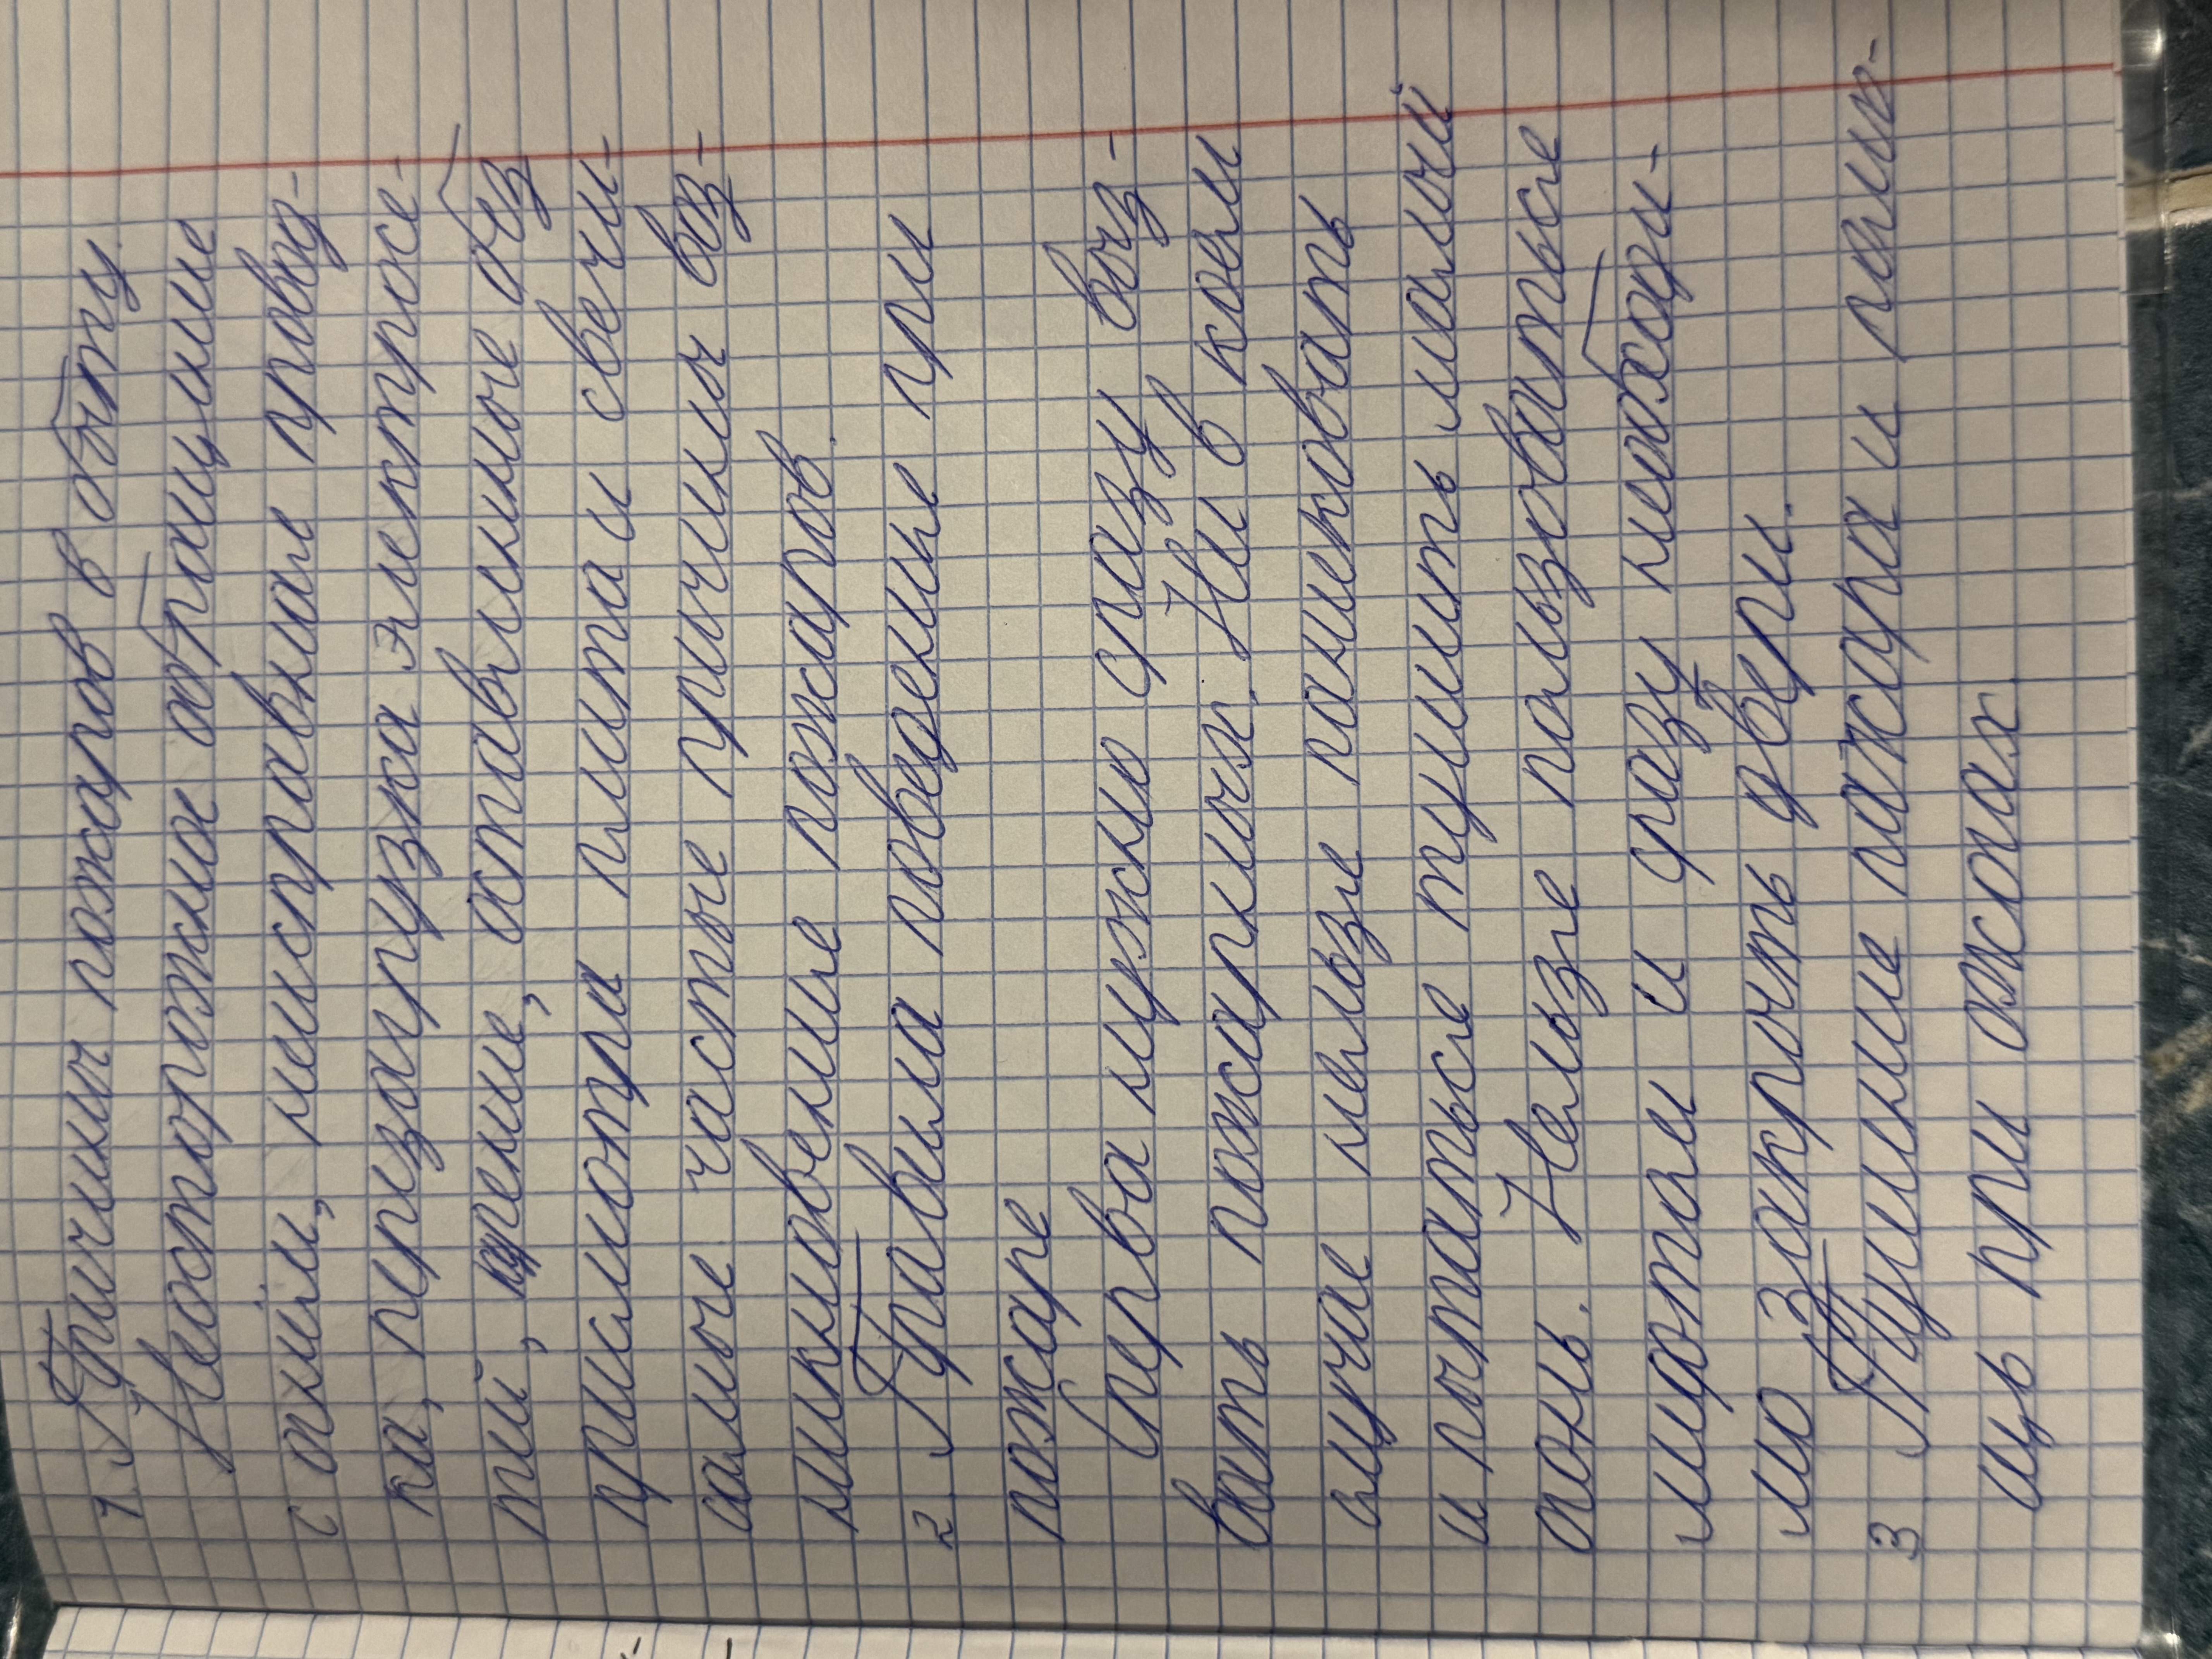 1. Причины пожаров в быту.
Неосторожное обращение
с огнём, неисправная провод-
ка, перезагрузка электросе-
тей, курение, оставленное без
присмотра плита и свечи-
самые частые причины воз-
никновение пожаров.
2. Правила поведение при
пожаре
Сперва нужно сразу выз-
вать пожарных. Ни в коем
случае нельзя паниковать
и пытаться тушить малый
огонь. Нельзя пользоваться
лифтом и сразу необходи-
мо закрыть двери.
3 Тушение пожара и помо-
щь при ожогах.